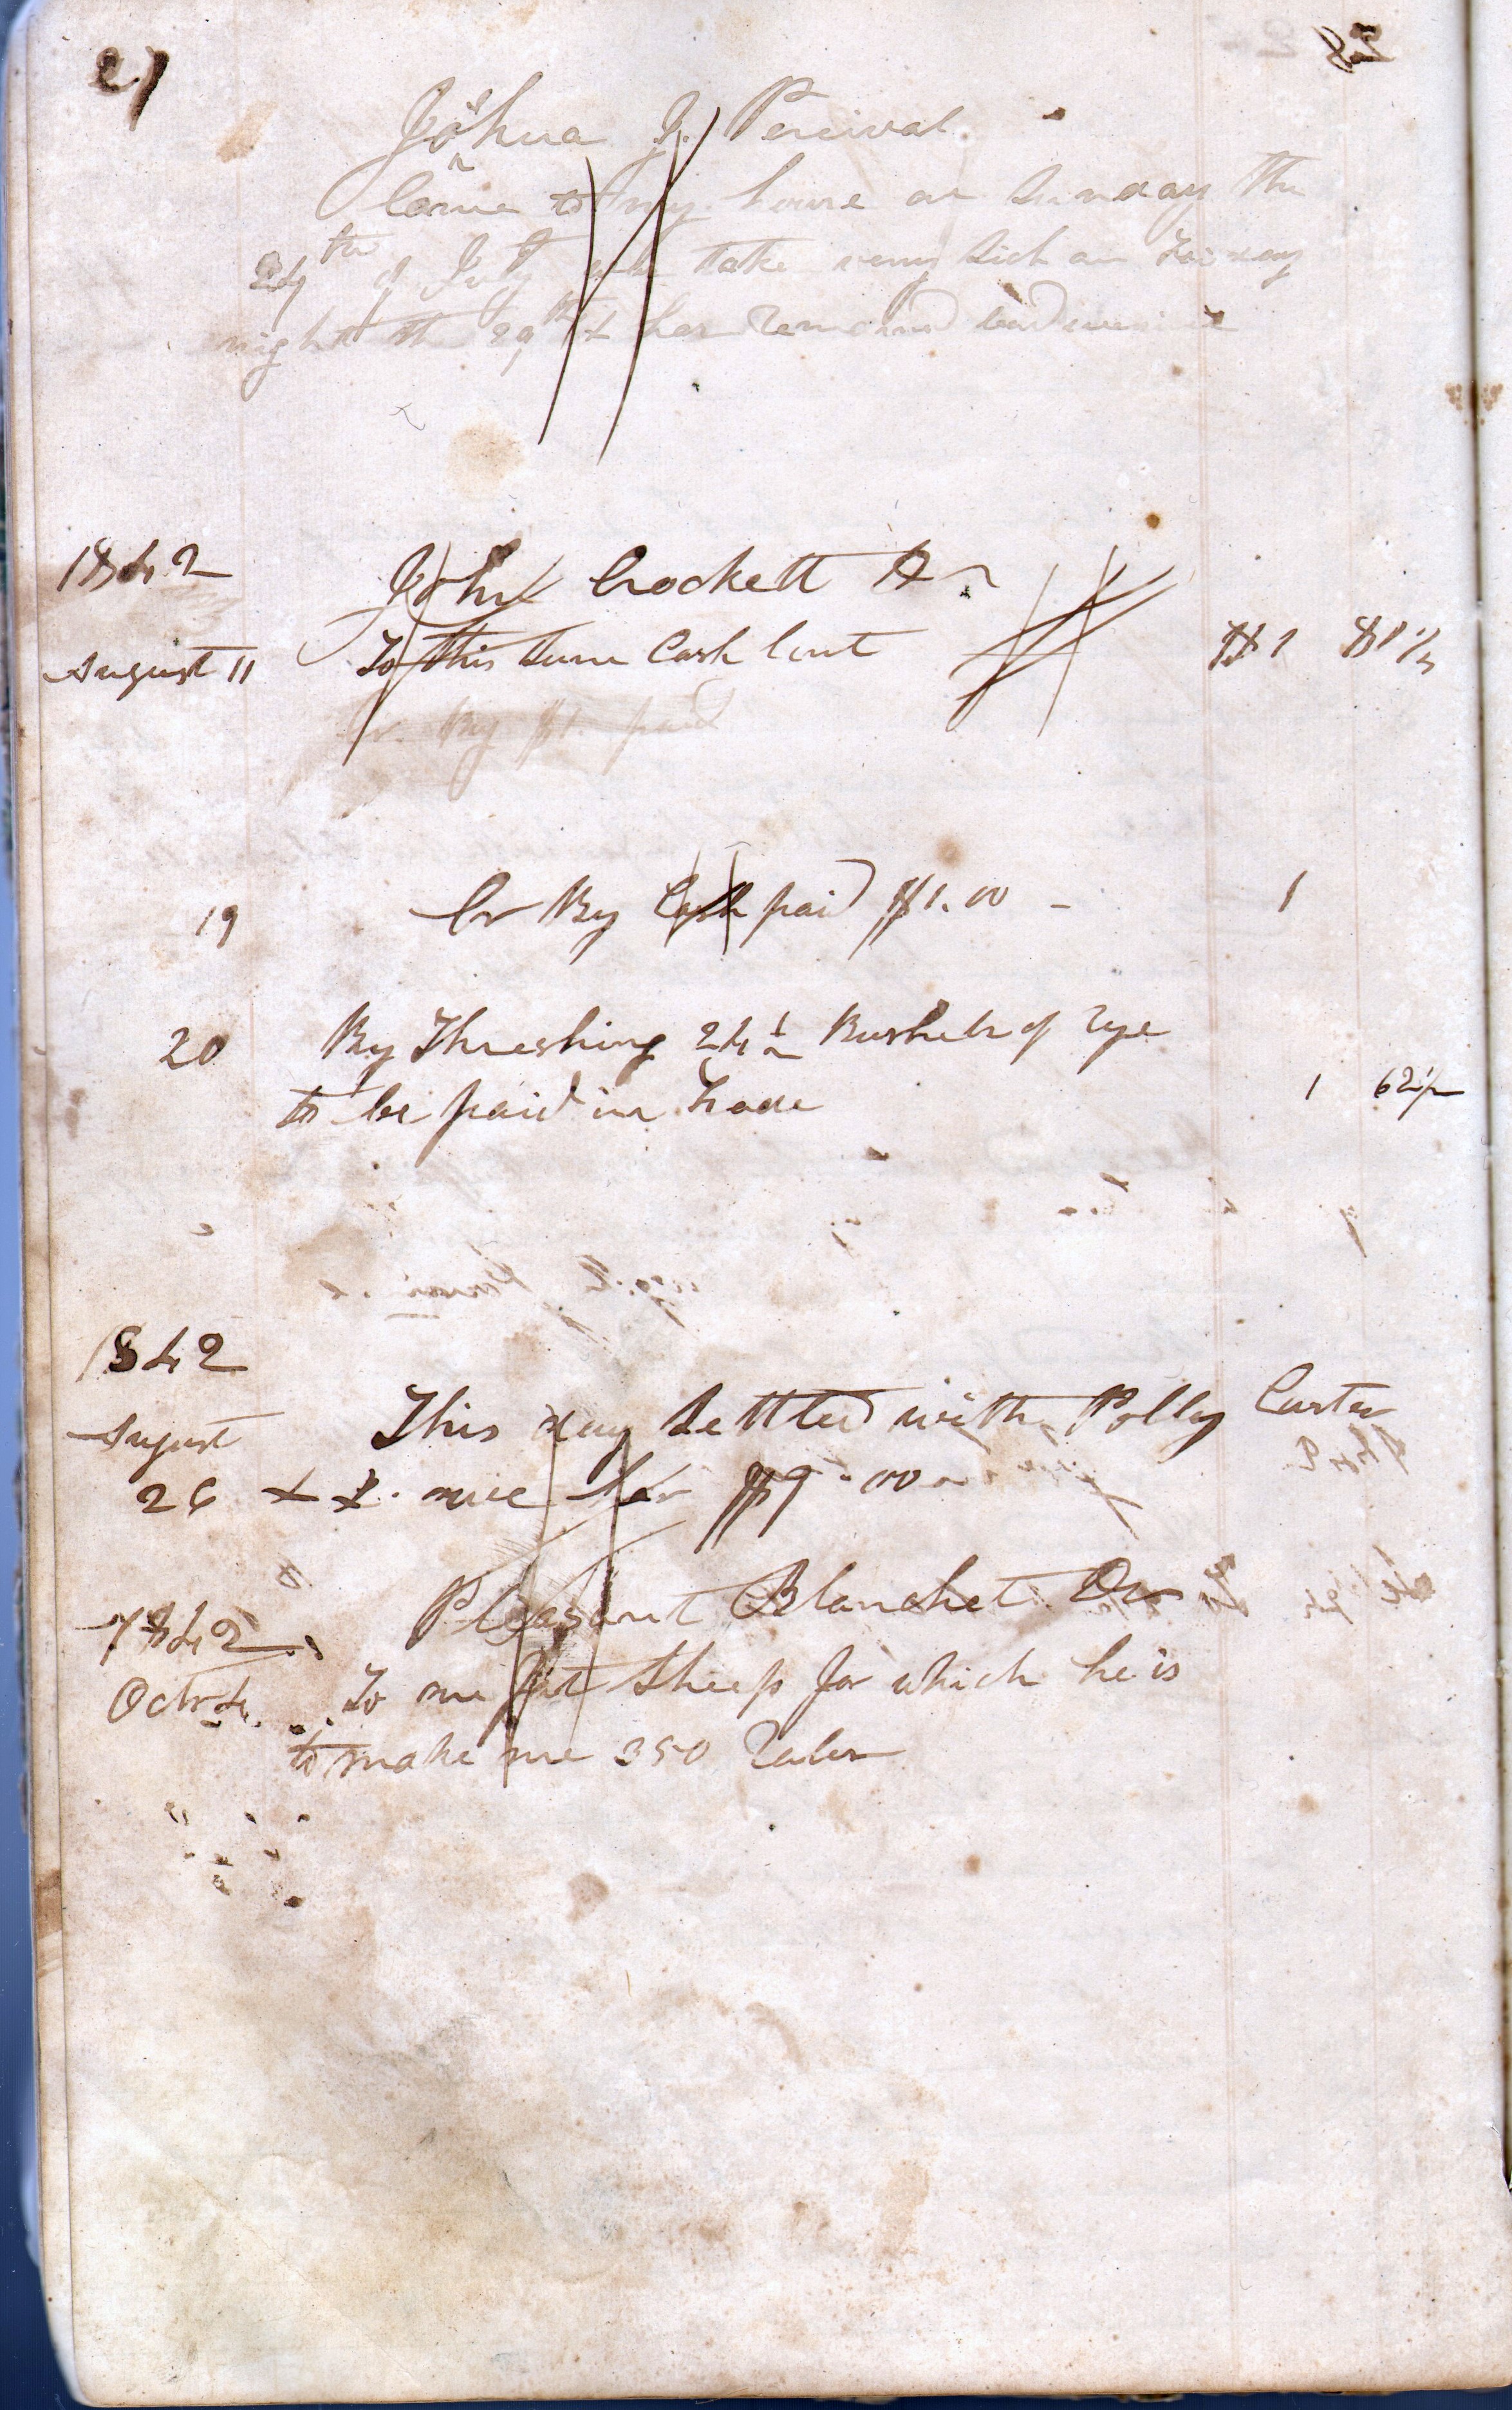 27
Joshua J. Percival
Came to my house on Sunday the
24th of July take very Sick on
night the 29th & has Remained
1842 John Crockett Dr
August 11 To this Sum Cash lent $1
Cr. By $1. paid
19 Cr By Cash paid $1.00 - 1
20 By Threshing 24½ Bushels of Rye
to be paid in trade 1 62½
1842
August This day Settled with Polly Carter
26 & I owe her $9.00
1842 Pleasant Blanchet Dr
Octr 4. To one fat Sheep for which he is
to make me 350 Railes